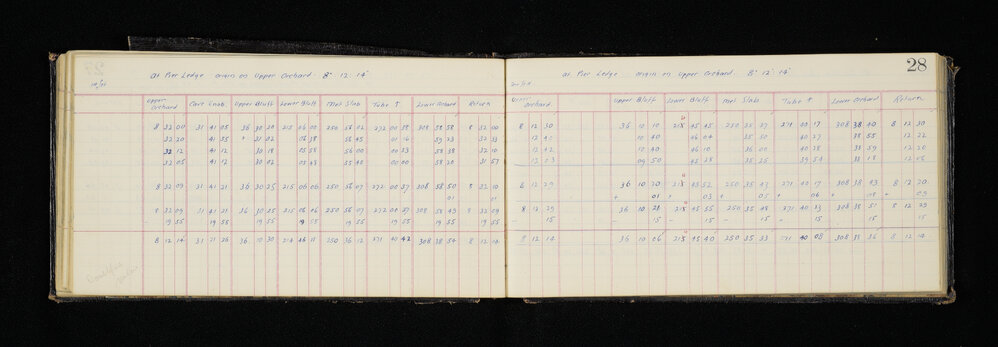 at Pier Ledge origin on Upper Orchard 8° 12' 14"
Upper Orchard Cave Knob Upper Bluff Lower Bluff Met Slab Tube ↑ Lower Orchard Return
8 32 00 31 41 05 36 30 20 215 06 00 250 56 02 272 00 38 308 58 58 8 32 00
32 20 41 55 31 02 06 38 56 45 01 16 59 23 32 33
32 12 41 12 30 18 05 58 56 00 00 33 58 38 32 10
32 05 41 12 30 02 05 43 55 40 00 00 58 20 31 57
8 32 09 31 41 21 36 30 25 215 06 06 250 56 07 272 00 37 308 58 50 8 32 10
01 01
8 32 09 31 41 21 36 30 25 215 06 06 250 56 07 272 00 37 308 58 49 8 32 09
- 19 55 19 55 19 55 19 55 19 55 19 55 19 55 19 55
8 12 14 31 21 26 36 10 30 214 46 11 250 36 12 271 40 42 308 38 54 8 12 14
28
at Pier Ledge origin on Upper Orchard 8° 12' 14"
Upper Orchard Upper Bluff Lower Bluff Met Slab Tube ↑ Lower Orchard Return
8 12 30 36 10 10 45 45 250 35 27 271 40 17 308 38 40 8 12 30
12 40 10 40 46 04 35 30 40 27 38 55 12 22
12 42 10 40 46 10 36 00 40 28 38 59 12 20
12 03 09 50 45 28 35 25 39 54 38 18 12 06
8 12 29 36 10 20 45 52 250 35 43 271 40 17 308 38 43 8 12 20
+ 01 + 03 + 05 + 06 + 08 + 09
8 12 29 36 10 21 45 55 250 35 48 271 40 23 308 38 51 8 12 29
- 15 - 15 - 15 - 15 - 15 - 15 - 15
8 12 14 36 10 06 45 40 250 35 33 271 40 08 308 38 36 8 12 14